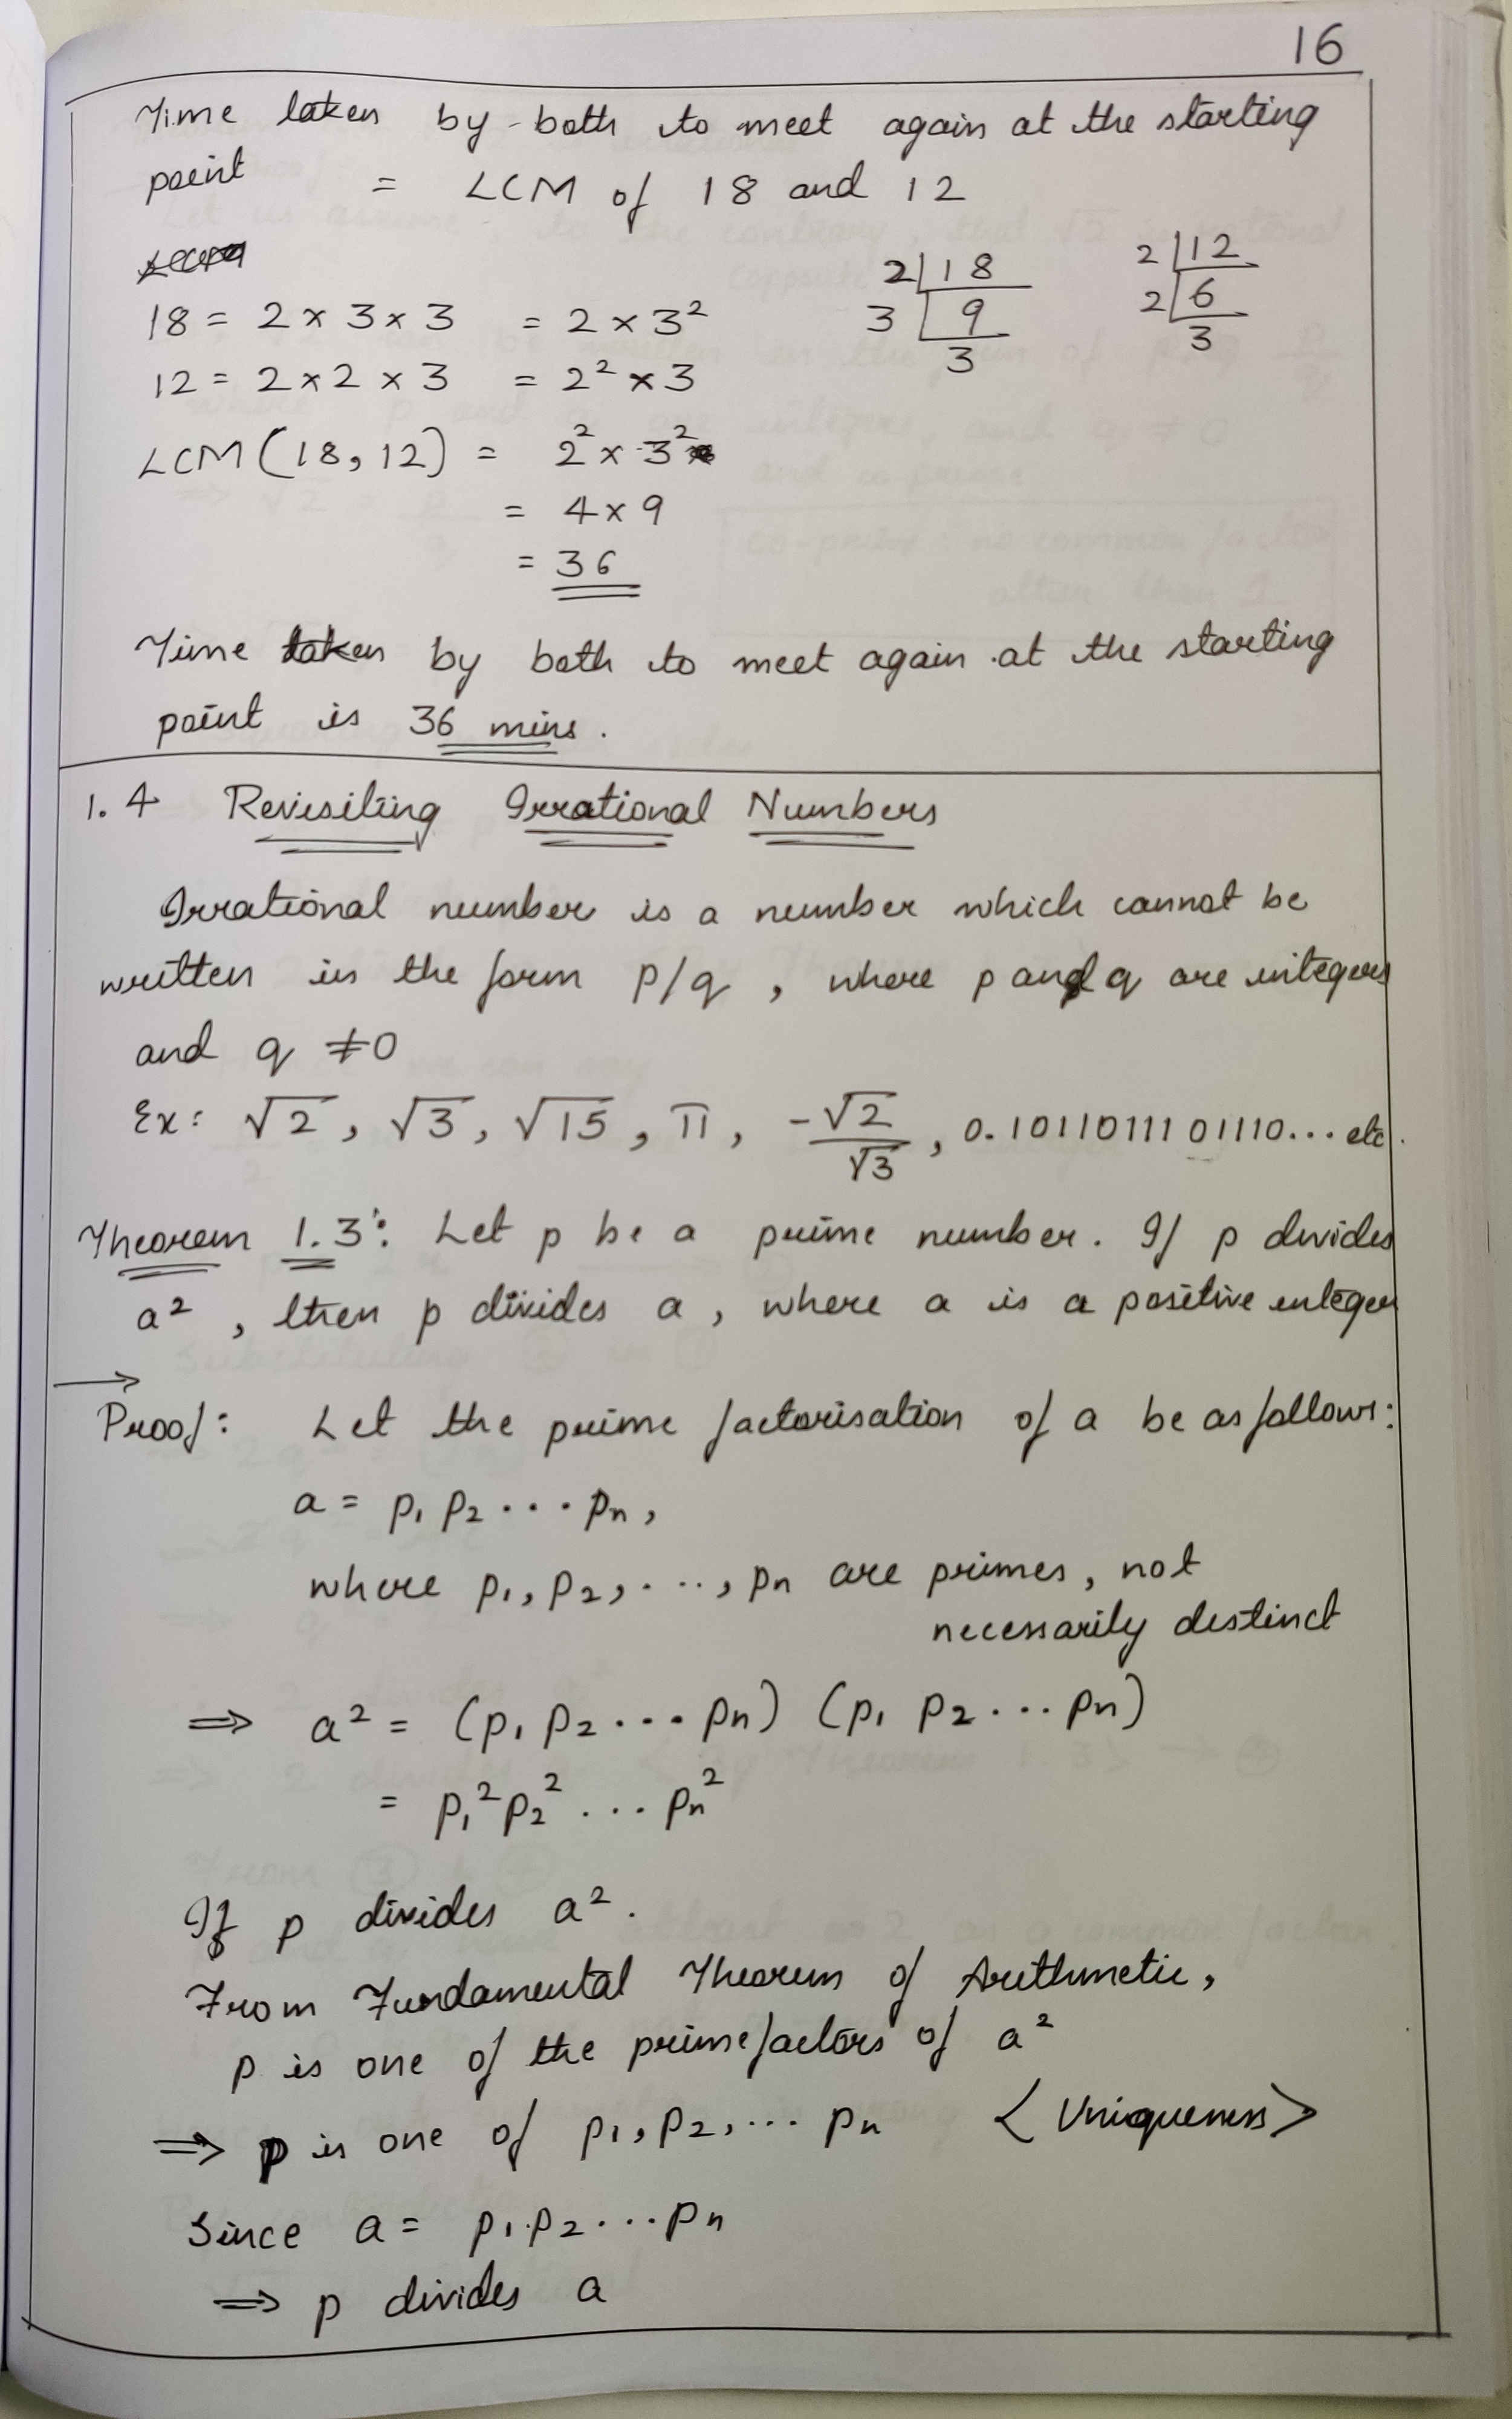 16
Time taken by both to meet again at the starting
point = LCM of 18 and 12
18 = 2 × 3 × 3 = 2 × 3²
12 = 2 × 2 × 3 = 2² × 3
2 | 18
3 | 9
3
2 | 12
2 | 6
3
LCM (18, 12) = 2² × 3²
= 4 × 9
= 36
Time taken by both to meet again at the starting
point is 36 mins.
1.4 Revisiting Irrational Numbers
Irrational number is a number which cannot be
written in the form p/q , where p and q are integers
and q ≠ 0
Ex: √2, √3, √15, π, -√2/√3, 0.10110111 01110... etc.
Theorem 1.3: Let p be a prime number. If p divides
a², then p divides a, where a is a positive integer
→
Proof: Let the prime factorisation of a be as follows:
a = p₁ p₂ ... pₙ,
where p₁, p₂, ..., pₙ are primes, not
necessarily distinct
⇒ a² = (p₁ p₂ ... pₙ) (p₁ p₂ ... pₙ)
= p₁² p₂² ... pₙ²
If p divides a².
From Fundamental Theorem of Arithmetic,
p is one of the prime factors of a²
⇒ p is one of p₁, p₂, ... pₙ < Uniqueness >
Since a = p₁.p₂ ... pₙ
⇒ p divides a